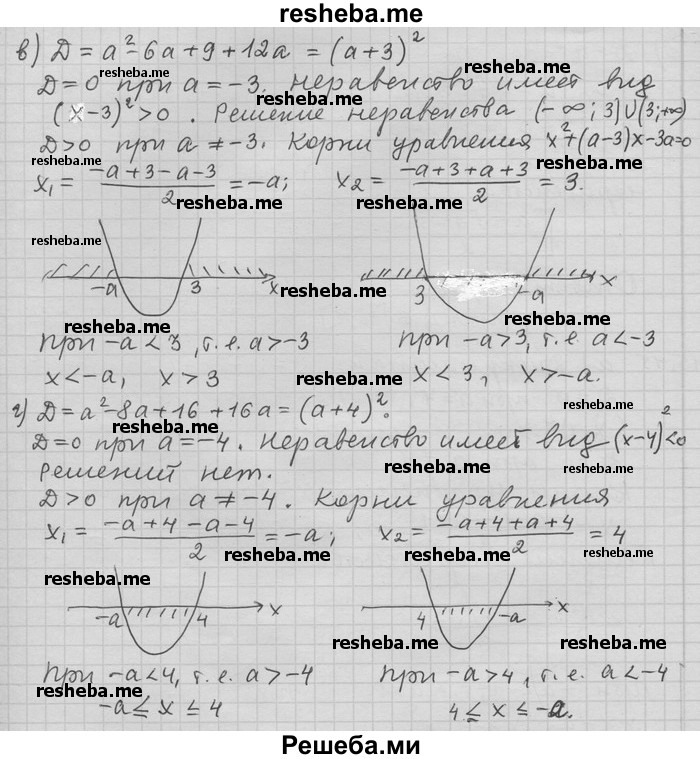 resheba.me
в) D = a² - 6a + 9 + 12a = (a+3)²
resheba.me
D=0 при a = -3. Неравенство имеет вид
resheba.me
(x-3)²>0. Решение неравенства (-∞; 3)∪(3;+∞)
resheba.me
D>0 при a ≠ -3. Корни уравнения x²+(a-3)x-3a=0
resheba.me resheba.me
x₁ = (-a+3-a-3)/2 = -a; x₂ = (-a+3+a+3)/2 = 3.
resheba.me resheba.me
resheba.me
-a 3 x 3 -a x
resheba.me
resheba.me resheba.me
При -a<3, т.е. a>-3 при -a>3, т.е. a<-3
x<-a, x>3 x<3, x>-a.
resheba.me
г) D = a²-8a+16+16a = (a+4)².
resheba.me
D=0 при a=-4. Неравенство имеет вид (x-4)²<0
resheba.me
Решений нет.
resheba.me
D>0 при a ≠ -4. Корни уравнения
resheba.me
x₁ = (-a+4-a-4)/2 = -a; x₂ = (-a+4+a+4)/2 = 4
resheba.me resheba.me resheba.me
resheba.me resheba.me
-a 4 x 4 -a x
resheba.me resheba.me
При -a<4, т.е. a>-4 При -a>4, т.е. a<-4
resheba.me resheba.me
-a ≤ x ≤ 4 4 ≤ x ≤ -a.
Решеба.ми